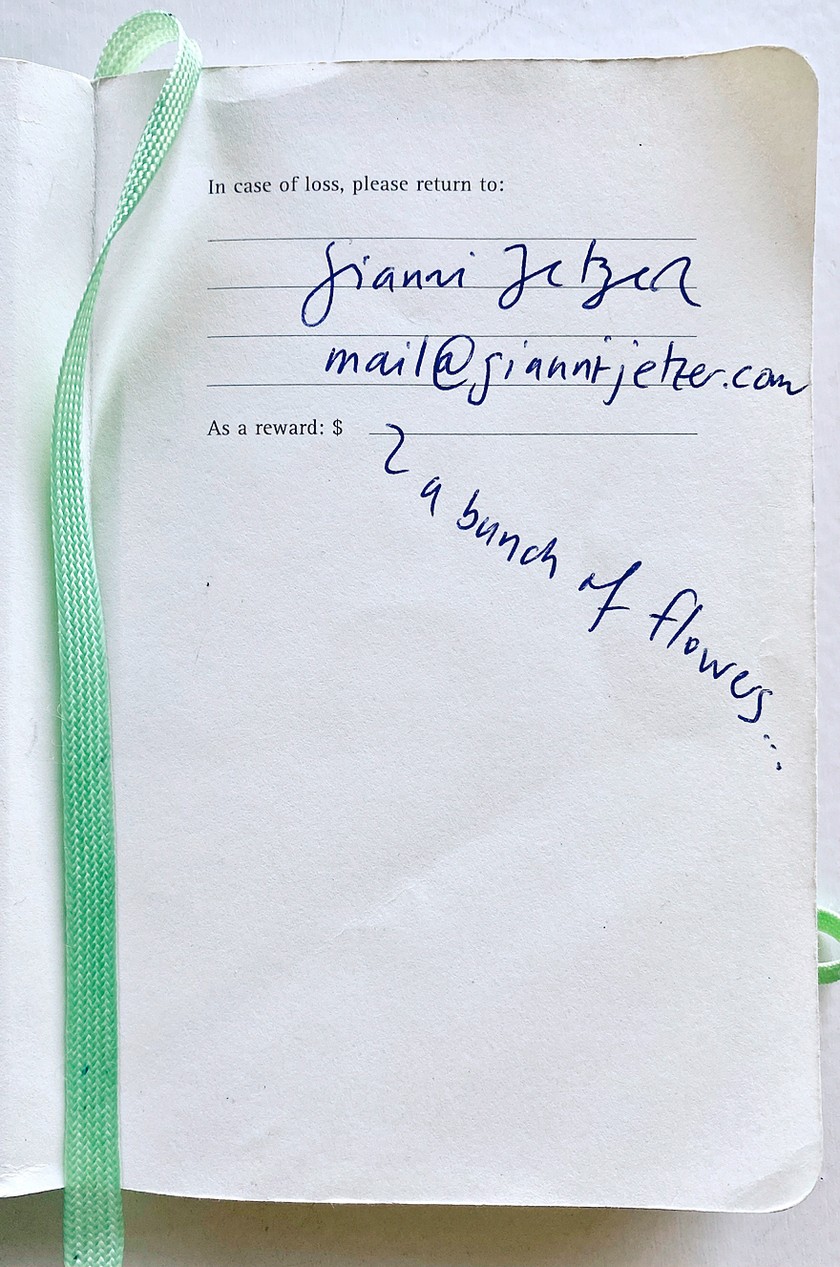 In case of loss, please return to:
Gianni Jetzer
mail@giannijetzer.com
As a reward: $
a bunch of flowers...